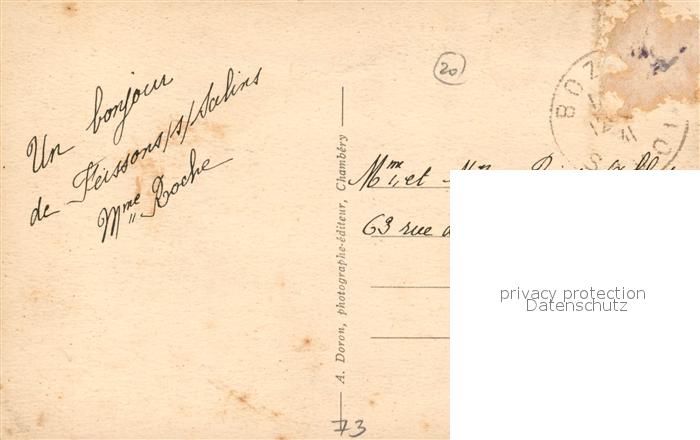 Un bonjour
de Feissons/s/Salins
Mme Roche
20
A. Doron, photographe-éditeur, Chambéry
BOZ
Mme et Mr
63 rue d
73
privacy protection
Datenschutz